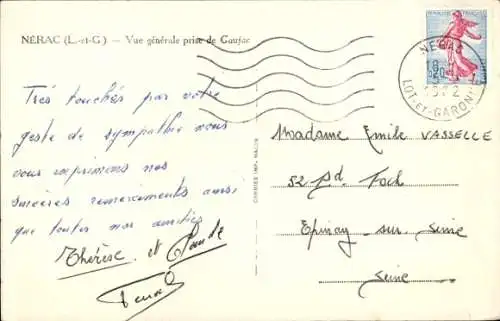 NÉRAC (L.-et-G.) — Vue générale prise de Gaujac
Très touchés par votre
geste de sympathie nous
vous exprimons nos
sincères remerciements ainsi
que toutes nos amitiés
Thérèse et
NÉRAC
LOT-et-GARONNE
Madame Emile VASSELLE
52 Bd. Foch
Epinay-sur-Seine
Seine